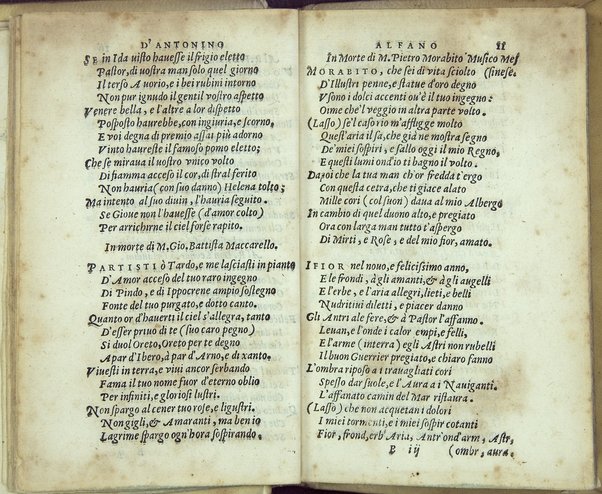 D'ANTONINO
SE in Ida uisto hauesse il frigio eletto
Pastor, di uostra man solo quel giorno
Il terso Auorio, e i bei rubini intorno
Non pur ignudo il gentil vostro aspetto
Venere bella, e l'altre a lor dispetto
Posposto haurebbe, con ingiuria, e scorno,
E voi degna di premio assai più adorno
Vinto haureste il famoso pomo eletto;
Che se miraua il uostro vnico volto
Di fiamma acceso il cor, di stral ferito
Non hauria (con suo danno) Helena tolto;
Ma intento al suo diuin, l'hauria seguito.
Se Gioue non l'hauesse (d'amor colto)
Per arricchirne il ciel forse rapito.
In morte di M. Gio. Battista Maccarello.
PARTISTI ò Tardo, e me lasciasti in pianto
D'Amor acceso del tuo raro ingegno
Di Pindo, e di Ippocrene ampio sostegno
Fonte del tuo purgato, e dotto canto.
Quanto or d'hauerti il ciel s'allegra, tanto
D'esser priuo di te (suo caro pegno)
Si duol Oreto, Oreto per te degno
A par d'Ibero, à par d'Arno, e di xanto.
Viuesti in terra, e viui ancor serbando
Fama il tuo nome fuor d'eterno oblio
Per infiniti, e gloriosi lustri.
Non spargo al cener tuo rose, e ligustri.
Non gigli, & Amaranti, ma ben io
Lagrime spargo ogn'hora sospirando.
ALFANO 11
In Morte di M. Pietro Morabito Musico Mes
MORABITO, che sei di vita sciolto (sinese.
D'Illustri penne, e statue d'oro degno
V'sono i dolci accenti ou'è il tuo ingegno:
Oime che'l veggio in altra parte volto.
(Lasso) se'l caso rio m'affligge molto
Quest'aria il sa, che già ne mostra segno
De' miei sospiri, e sallo oggi il mio Regno,
E questi lumi ond'io ti bagno il volto.
Dapoi che la tua man ch'or fredda t'ergo
Con questa cetra, che ti giace alato
Mille cori (col suon) daua al mio Albergo
In cambio di quel duono alto, e pregiato
Ora con larga man tutto t'aspergo
Di Mirti, e Rose, e del mio fior, amato.
I FIOR nel nouo, e felicissimo anno,
E le frondi, à gli amanti, & à gli augelli
E l'erbe, e l'aria allegri, lieti, e belli
Nudritiui diletti, e piacer danno
Gli Antri ale fere, & à Pastor l'affanno.
Leuan, e l'onde i calor empi, e felli,
E l'arme (interra) egli Astri non rubelli
Il buon Guerrier pregiato, e chiaro fanno
L'ombra riposo a i trauagliati cori
Spesso dar suole, e l'Aura a i Nauiganti.
L'affanato camin del Mar ristaura.
(Lasso) che non acquetan i dolori
I miei tormenti, e i miei sospir cotanto
Fior, frond, erb'Aria, Antr'ond'arm, Astr,
B iij (ombr, aura.